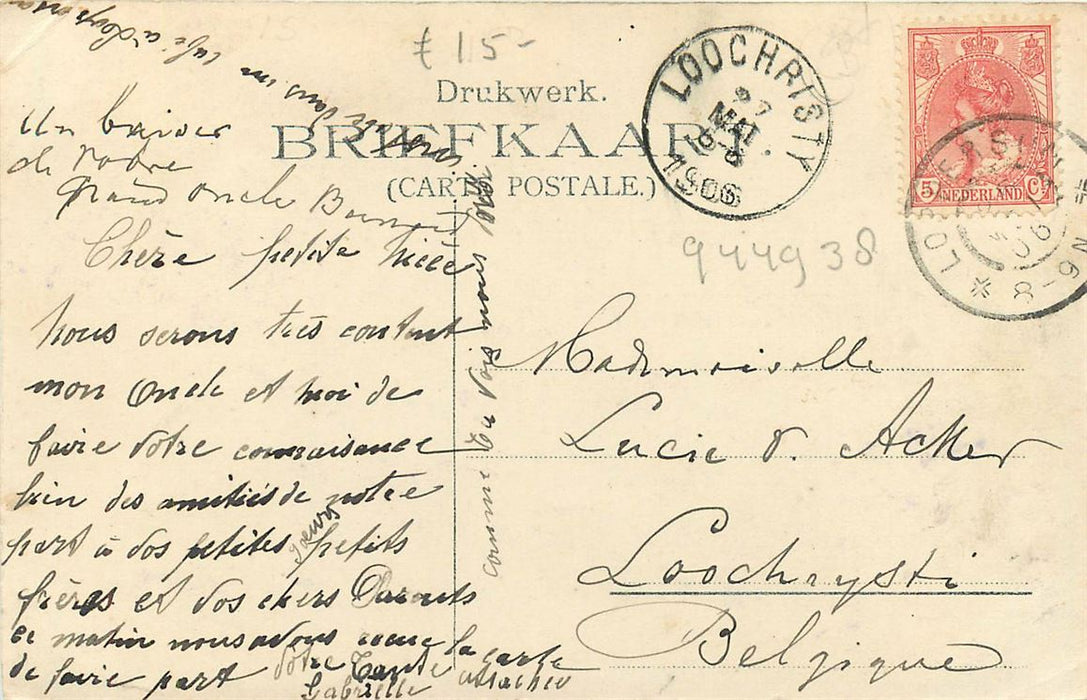 £ 15-
Drukwerk.
BRIEFKAART.
(CARTE POSTALE.)
LOOCHRISTY
27
MAI
1906
5 NEDERLAND Ct
944938
Un baiser
de votre
grand oncle
Chère petite nièce
Nous serons très content
mon Oncle et moi de
faire votre connaisance
bien des amitiés de notre
part à vos petites soeurs petits
frères et vos chers Parents
ce matin nous avons
de faire part votre Tante la carte
Gabrielle
comme tu vois nous
Mademoiselle
Lucie v. Acker
Loochrysti
Belgique